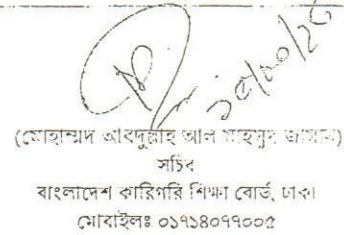 (মোহাম্মদ আবদুল্লাহ আল মাহমুদ জামান)
সচিব
বাংলাদেশ কারিগরি শিক্ষা বোর্ড, ঢাকা
মোবাইলঃ ০১৭১৪০৭৭০০৫